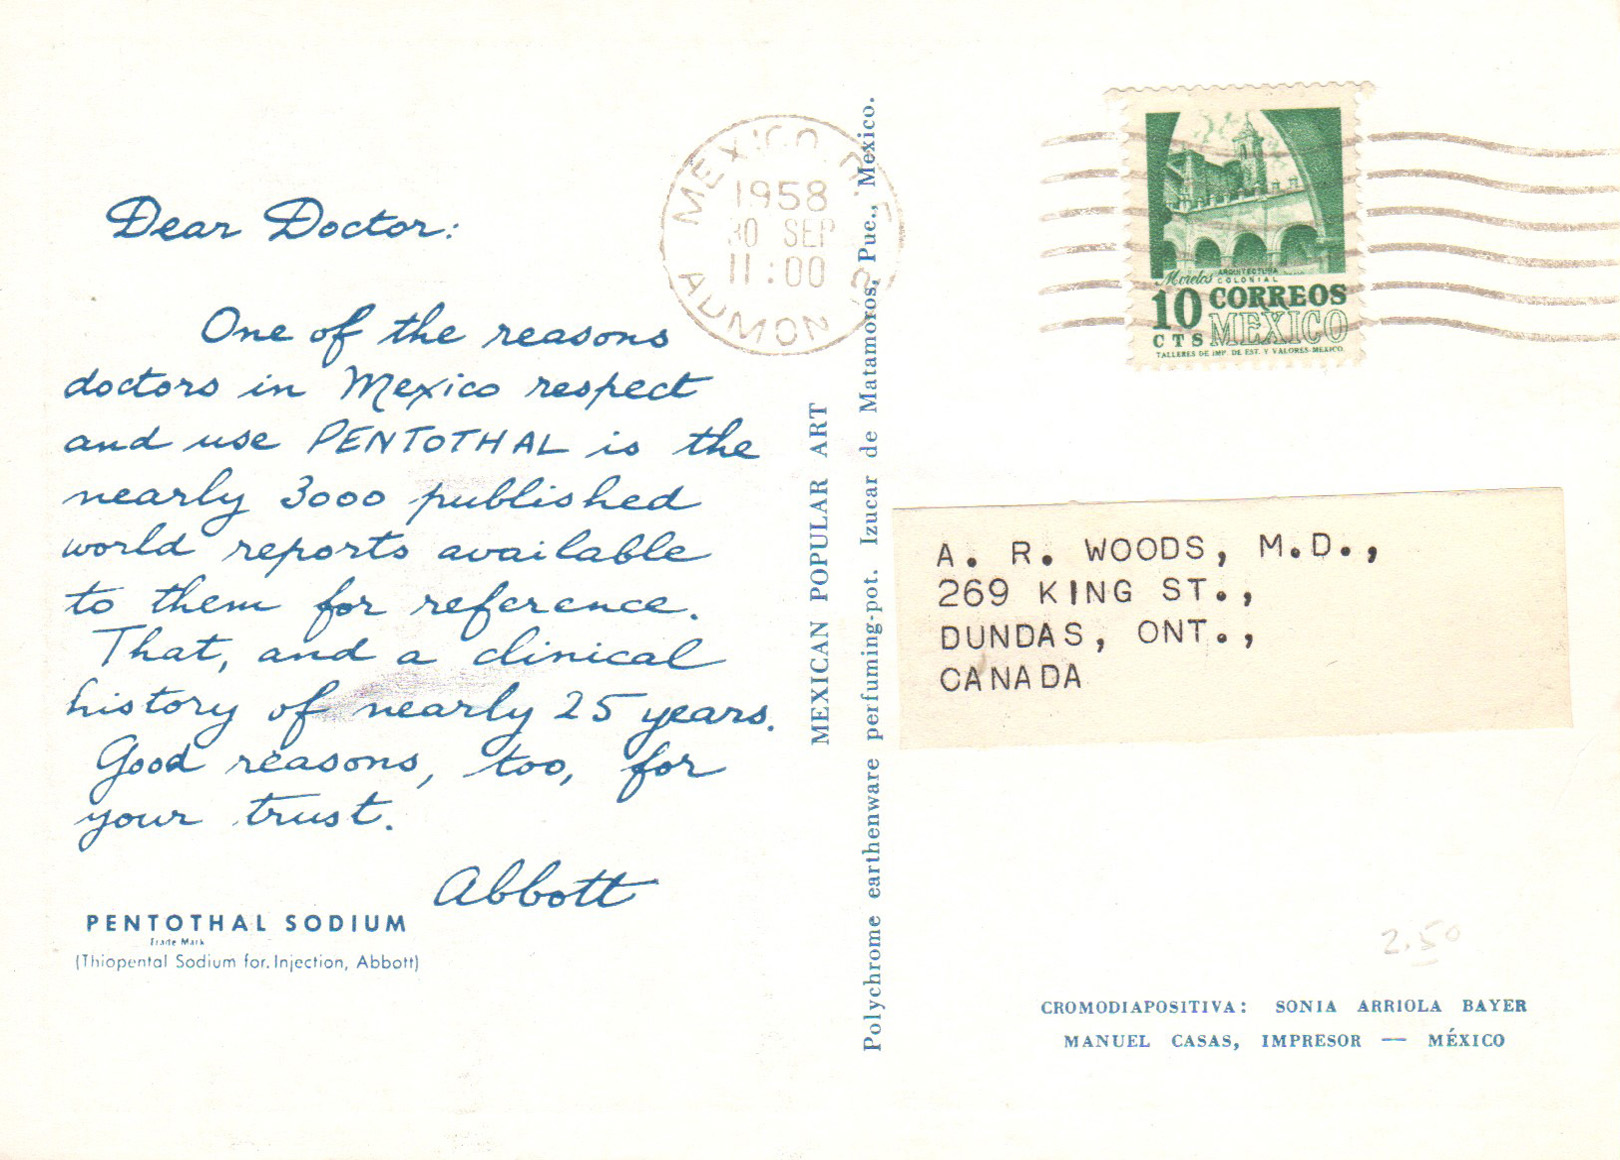 Dear Doctor:
One of the reasons
doctors in Mexico respect
and use PENTOTHAL is the
nearly 3000 published
world reports available
to them for reference.
That, and a clinical
history of nearly 25 years.
Good reasons, too, for
your trust.
Abbott
PENTOTHAL SODIUM
Trade Mark
(Thiopental Sodium for Injection, Abbott)
MEXICAN POPULAR ART
Polychrome earthenware perfuming-pot. Izucar de Matamoros, Pue., Mexico.
MEXICO
1958
30 SEP
11:00
ADMON
Morelos ARQUITECTURA
COLONIAL
10 CORREOS
CTS MEXICO
TALLERES DE IMP. DE EST. Y VALORES-MEXICO
A. R. WOODS, M.D.,
269 KING ST.,
DUNDAS, ONT.,
CANADA
2.50
CROMODIAPOSITIVA: SONIA ARRIOLA BAYER
MANUEL CASAS, IMPRESOR — MÉXICO